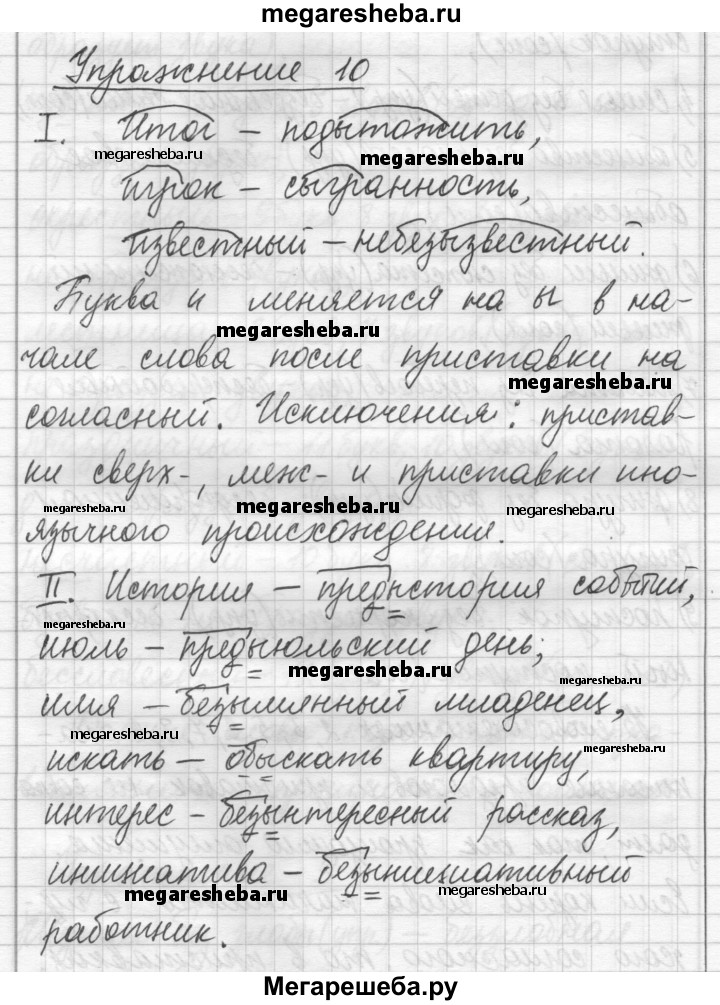 megaresheba.ru
Упражнение 10
I. Итог – подытожить,
megaresheba.ru megaresheba.ru
игрок – сыгранность,
известный – небезызвестный.
Буква и меняется на ы в на-
megaresheba.ru
чале слова после приставки на
megaresheba.ru
согласный. Исключения: пристав-
ки сверх-, меж- и приставки ино-
megaresheba.ru megaresheba.ru megaresheba.ru
язычного происхождения.
II. История – предыстория событий,
megaresheba.ru
июль – предыюльский день,
megaresheba.ru megaresheba.ru
имя – безымянный младенец,
megaresheba.ru
искать – обыскать квартиру,
megaresheba.ru
интерес – безынтересный рассказ,
инициатива – безынициативный
megaresheba.ru megaresheba.ru
работник.
Мегарешеба.ру